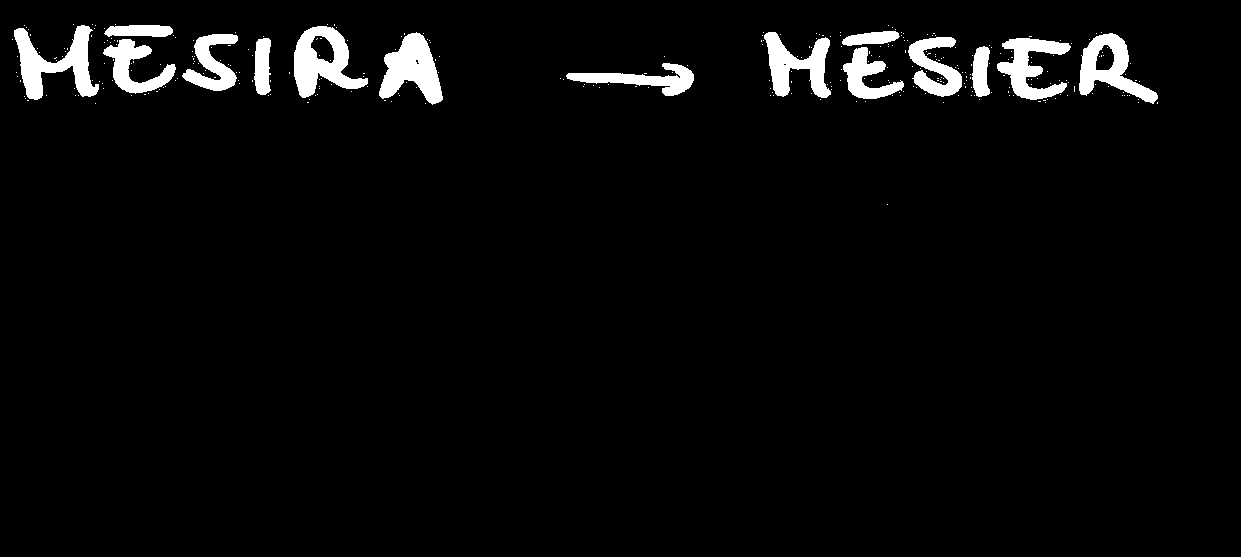 MESIRA → MESIER